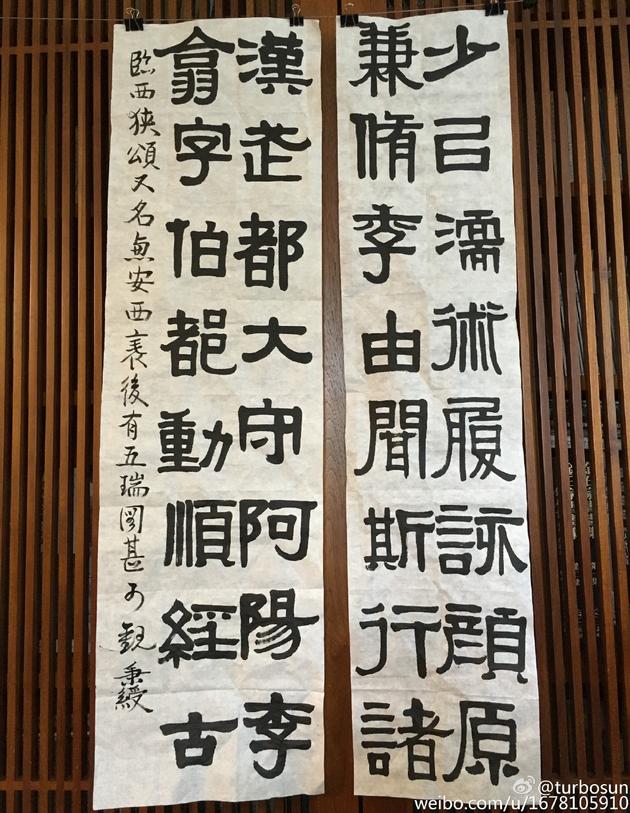 少㠯濡術履詠顏原
兼脩季由聞斯行諸
漢武都大守阿陽李
翕字伯都動順經古
臨西狹頌又名惠安西表後有五瑞圖甚可觀 秉綬
@turbosun
weibo.com/u/1678105910